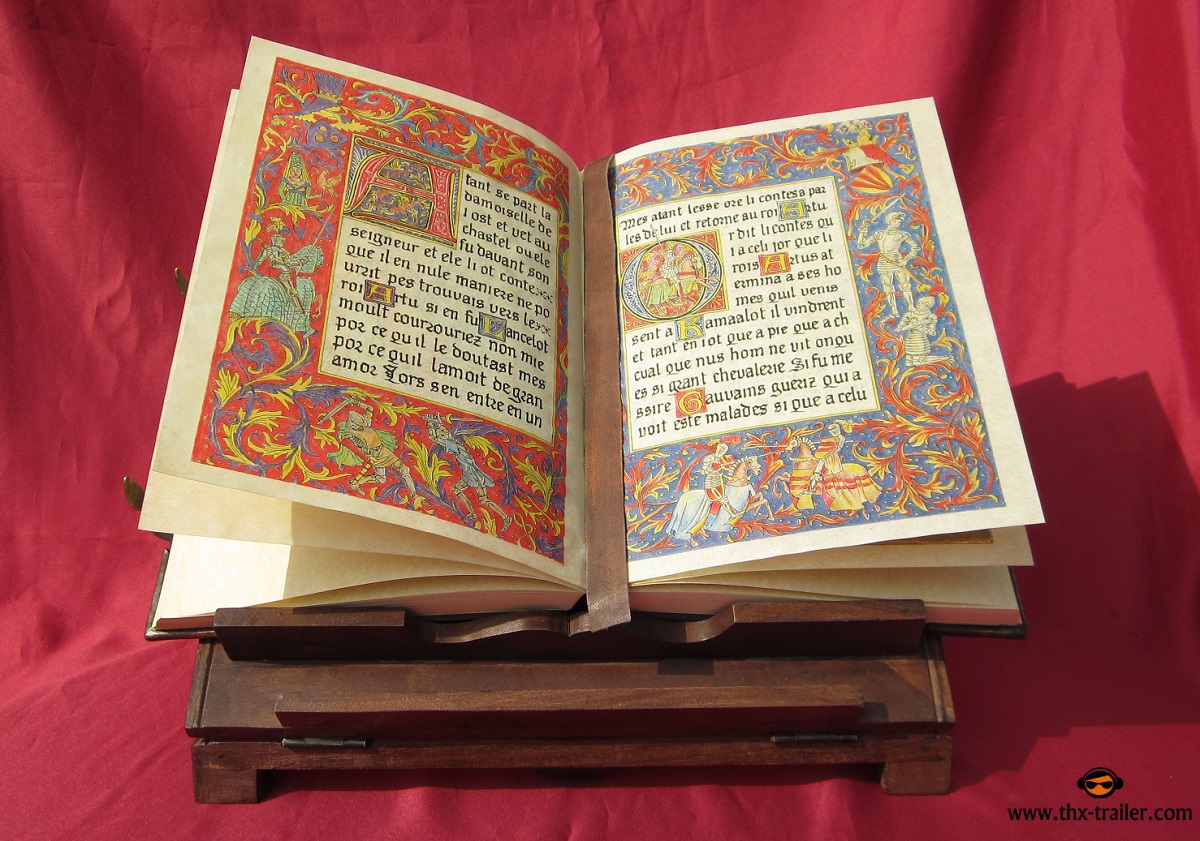 Atant se part la
damoiselle de
l ost et vet au
chastel ou ele
fu davant son
seigneur et ele li ot conte
que il en nule maniere ne po
urrit pes trouvais vers le
roi Artu si en fu Lancelot
moult courzouriez non mie
por ce quil le doutast mes
por ce quil lamoit de gran
amor Lors sen entre en un
Mes atant lesse ore li contes a par
les de lui et retorne au roi Artu
Or dit li contes qu
i a celi jor que li
rois Artus at
ermina a ses ho
mes quil venis
sent a Kamaalot il vindrent
et tant en i ot que a pie que a ch
eual que nus hom ne vit onqu
es si grant chevalerie Si fu me
ssire Gauvains gueriz qui a
voit este malades si que a celu
www.thx-trailer.com